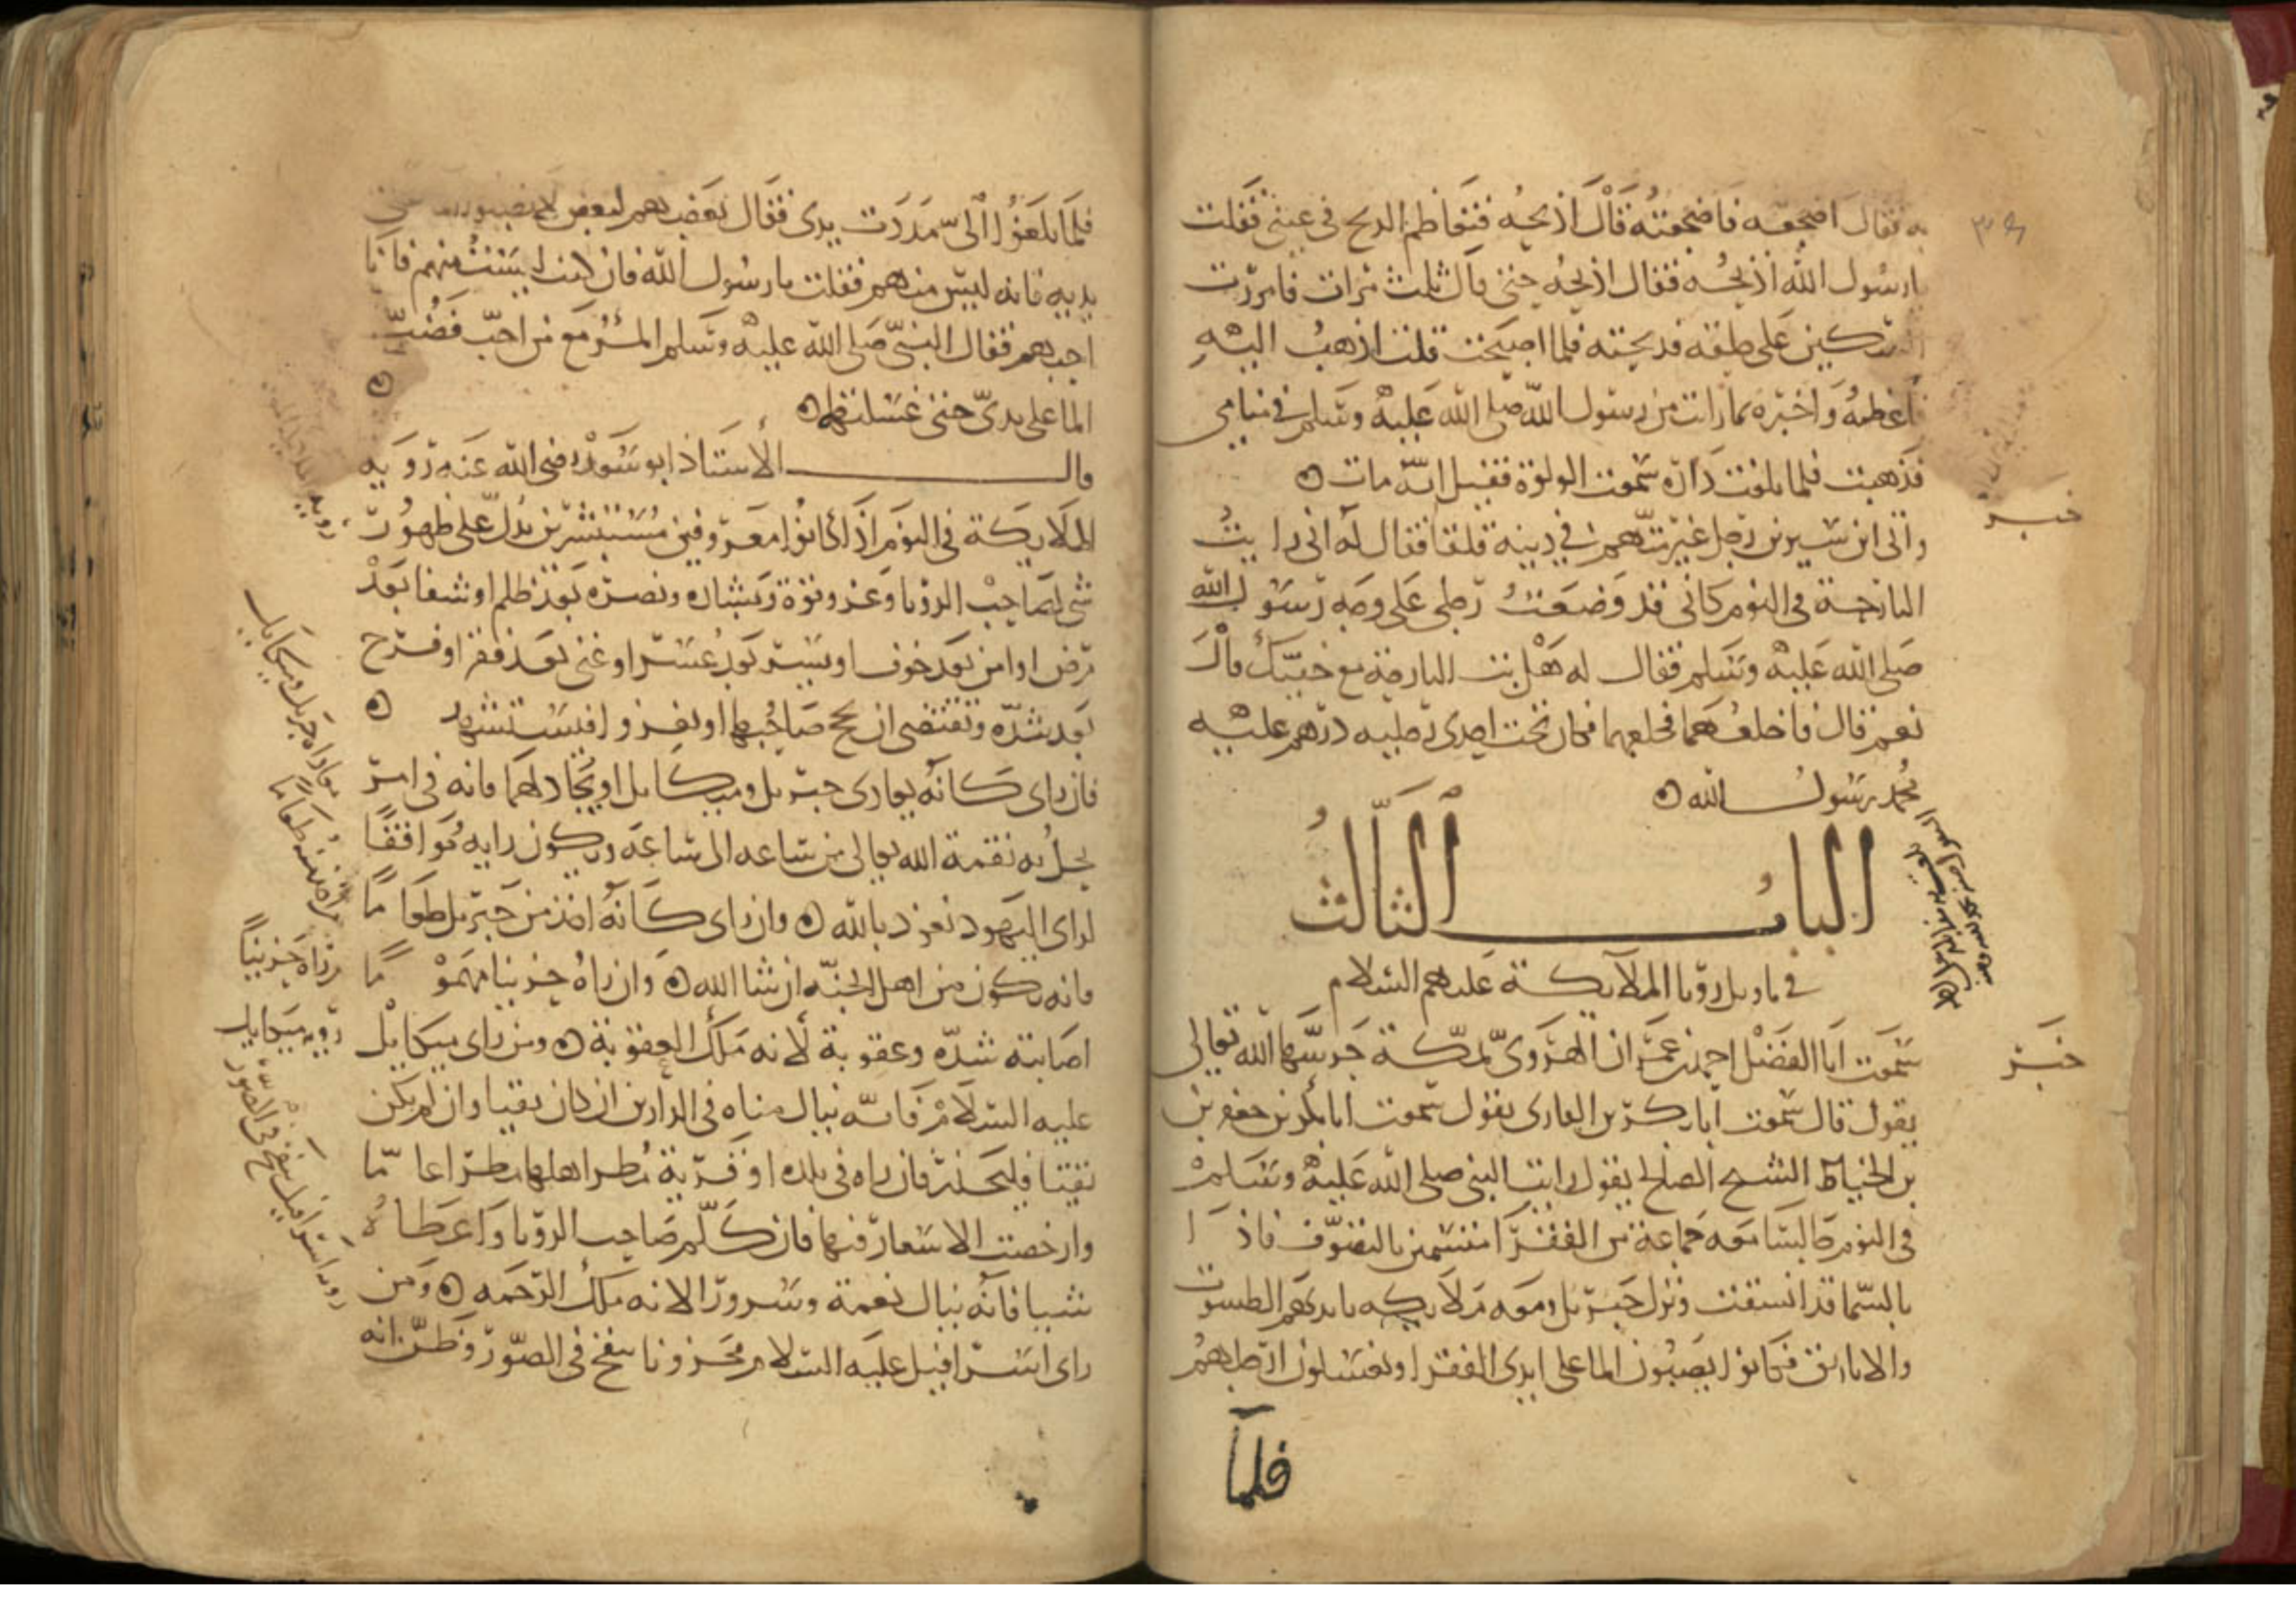 به فقال اضجعه فاضجعته قال اذبحه فتعاظم الذبح في عيني فقلت
يا رسول الله اذبحه فقال اذبحه حتى قال ثلث مرات فامررت
السكين على حلقه فذبحته فلما اصبحت قلت اذهب اليه
فاعظه واخبره بما رايت من رسول الله صلى الله عليه وسلم في منامي
فذهبت فلما بلغت داره سمعت الولولة فقيل انه مات
خبر
واتى ابن سيرين رجل غير متهم في دينه قلقا فقال له اني رايت
البارحة في النوم كاني قد وضعت رجلي على وجه رسول الله
صلى الله عليه وسلم فقال له هل بت البارحة مع خفيك قال
نعم قال فاخلعهما فخلعهما فكان تحت احدى رجليه درهم عليه
محمد رسول الله
الباب الثالث
في تاويل رؤيا الملايكة عليهم السلام
خبر
سمعت ابا الفضل احمد بن عمران الهروي بمكة حرسها الله تعالى
يقول قال سمعت ابا بكر بن القاري يقول سمعت ابا بكر بن جعفر بن
بن الخياط الشيخ الصالح يقول رايت النبي صلى الله عليه وسلم
في النوم جالسا معه جماعة من الفقرا متسمين بالتصوف فاذا
بالسما قد انشقت ونزل جبريل ومعه ملايكه بايديهم الطسوت
والاباريق فكانوا يصبون الما على ايدي الفقرا ويغسلون ارجلهم
فلما
فلما بلغوا الي مددت يدي فقال بعضهم لبعض لا تصبوا الما على
يديه فانه ليس منهم فقلت يا رسول الله فان كنت لست منهم فانا
احبهم فقال النبي صلى الله عليه وسلم المرء مع من احب فصب
الما على يدي حتى غسلتهما
قال الاستاذ ابو سعد رضي الله عنه رويه
الملايكة في النوم اذا كانوا معروفين مستبشرين يدل على ظهور
شي لصاحب الرؤيا وعز وقوة وبشاره ونصره بعد ظلم او شفا بعد
مرض او امن بعد خوف او يسر بعد عسر او غنى بعد فقر او فرح
بعد شده وتقتضي ان يحج صاحبها او يغزو افيستشهد
فان راى كانه يعادي جبريل وميكايل او يجادلهما فانه في امر
يحل به نقمة الله تعالى من ساعه الى ساعه ويكون رايه موافقا
لراى اليهود نعوذ بالله وان راى كانه اخذ من جبريل طعاما
فانه يكون من اهل الجنه ان شا الله وان راه حزينا مهموما
اصابته شده وعقوبة لانه ملك العقوبة ومن راى ميكايل
عليه السلام فانه ينال مناه في الدارين ان كان تقيا وان لم يكن
تقيا فليحذر فان راه في بلده او قرية مطر اهلها مطرا عاما
وارخصت الاسعار فيها فان كلم صاحب الرؤيا واعطاه
شيا فانه ينال نعمة وسرورا لانه ملك الرحمه ومن
راى اسرافيل عليه السلام محزونا ينفخ في الصور وظن انه
من راه حزينا
رويه ميكايل
رويه اسرافيل ينفخ في الصور